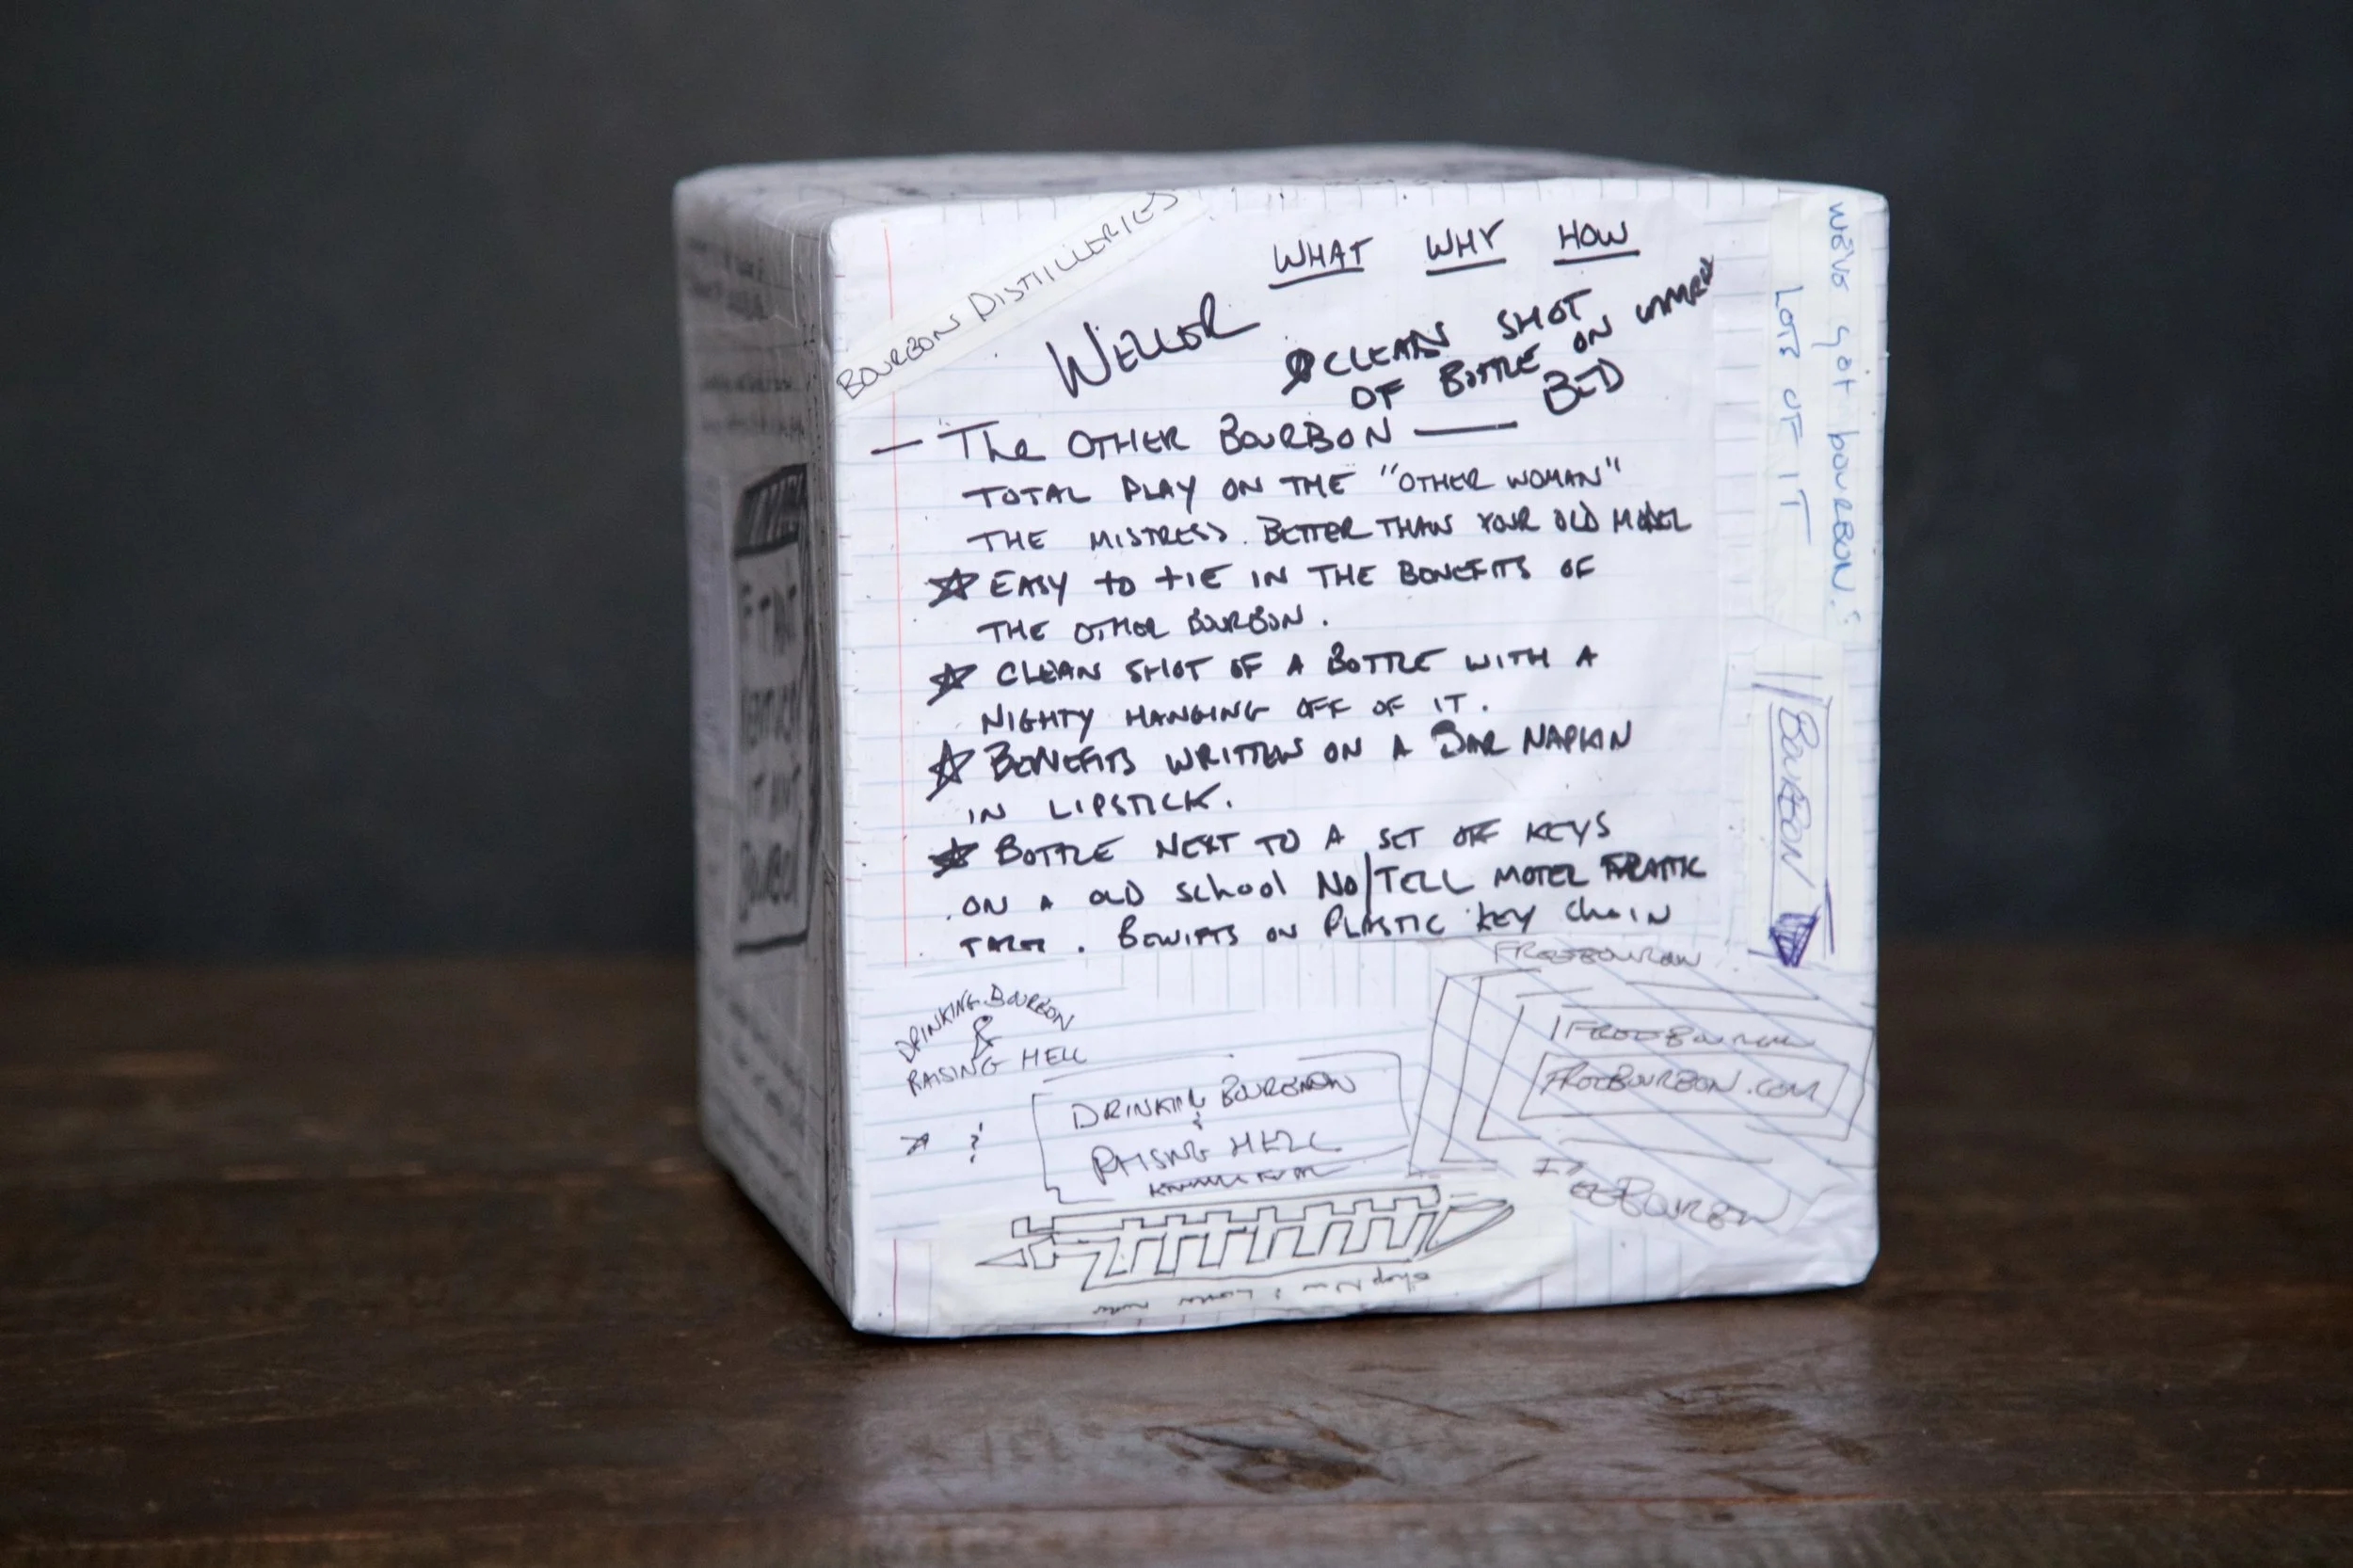 BOURBON DISTILLERIES
WHAT WHY HOW
WELLER
CLEAN SHOT
OF BOTTLE ON
BED
— The OTHER BOURBON —
TOTAL PLAY ON THE "OTHER WOMAN"
THE MISTRESS. BETTER THAN YOUR OLD MODEL
☆ EASY to tIE IN THE BENEFITS OF
THE OTHER BOURBON.
☆ CLEAN SHOT OF A BOTTLE WITH A
NIGHTY HANGING OFF OF IT.
☆ BENEFITS WRITTEN ON A BAR NAPKIN
IN LIPSTICK.
☆ BOTTLE NEXT TO A SET OF KEYS
ON A OLD School NO/TELL MOTEL
ON PLASTIC KEY ChaIN
we've got bourbon.
LOTS OF IT
BOURBON
DRINKING BOURBON
&
RAISING HELL
DRINKING BOURBON
&
RAISING HELL
FREEBOURBON
FREEBOURBON
FREEBOURBON.COM
FREEBOURBON